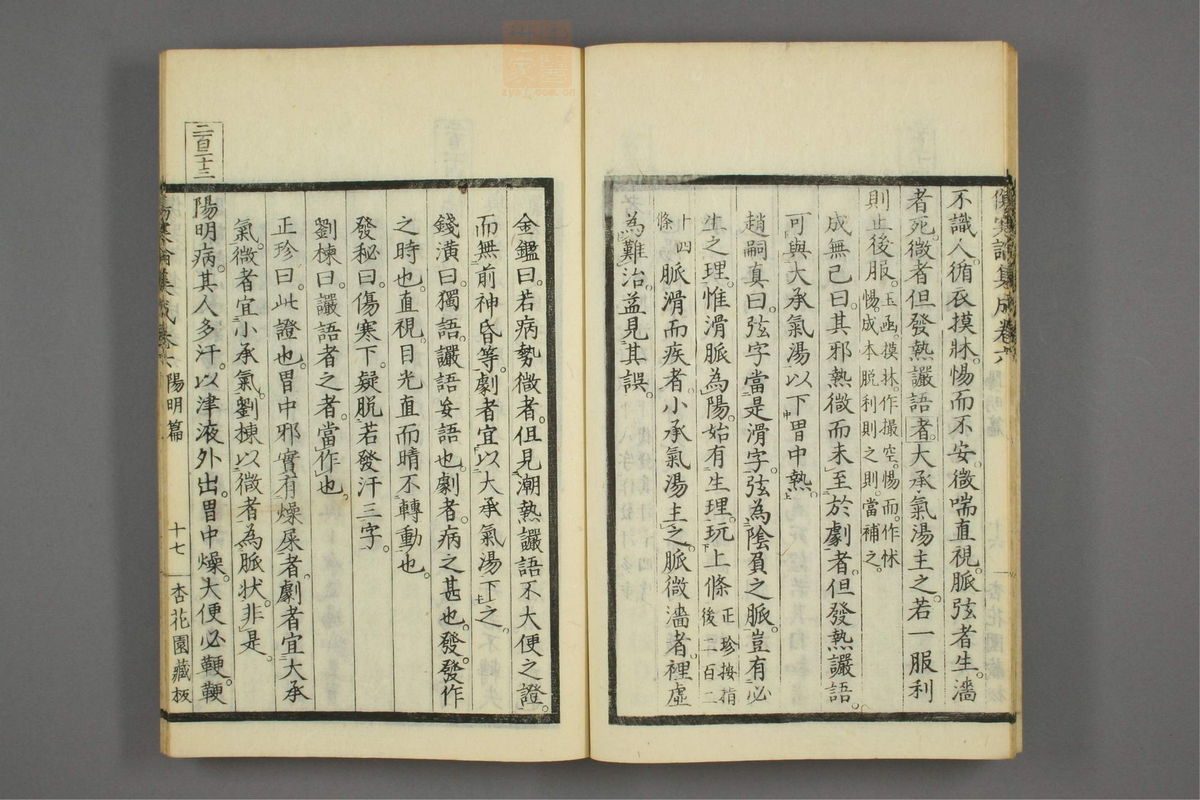 不識人。循衣摸牀。惕而不安。微喘直視。脈弦者生。濇
者死。微者但發熱讝語者。大承氣湯主之。若一服利
則止後服。玉函。摸牀。作撮空。惕而。作怵惕。成本脱利則之則。當補之。
成無已曰。其邪熱微而未至於劇者。但發熱讝語。
可與大承氣湯以下胃中熱。
趙嗣真曰。弦字當是滑字。弦為陰負之脈。豈有必
生之理。惟滑脈為陽。始有生理。玩上條正珍按。指後二百二
十四條脈滑而疾者。小承氣湯主之。脈微濇者。裡虛
為難治。益見其誤。
金鑑曰。若病勢微者。但見潮熱讝語不大便之證。
而無前神昏等。劇者宜以大承氣湯下之。
錢潢曰。獨語。讝語妄語也。劇者。病之甚也。發。發作
之時也。直視。目光直而睛不轉動也。
發秘曰。傷寒下。疑脱若發汗三字。
劉棟曰。讝語者之者。當作也。
正珍曰。此證也。胃中邪實有燥屎者。劇者宜大承
氣。微者宜小承氣。劉棟以微者為脈状。非是。
二百二十三
陽明病。其人多汗。以津液外出。胃中燥。大便必鞕。鞕
傷寒論集成卷六 陽明篇 十七 杏花園藏板